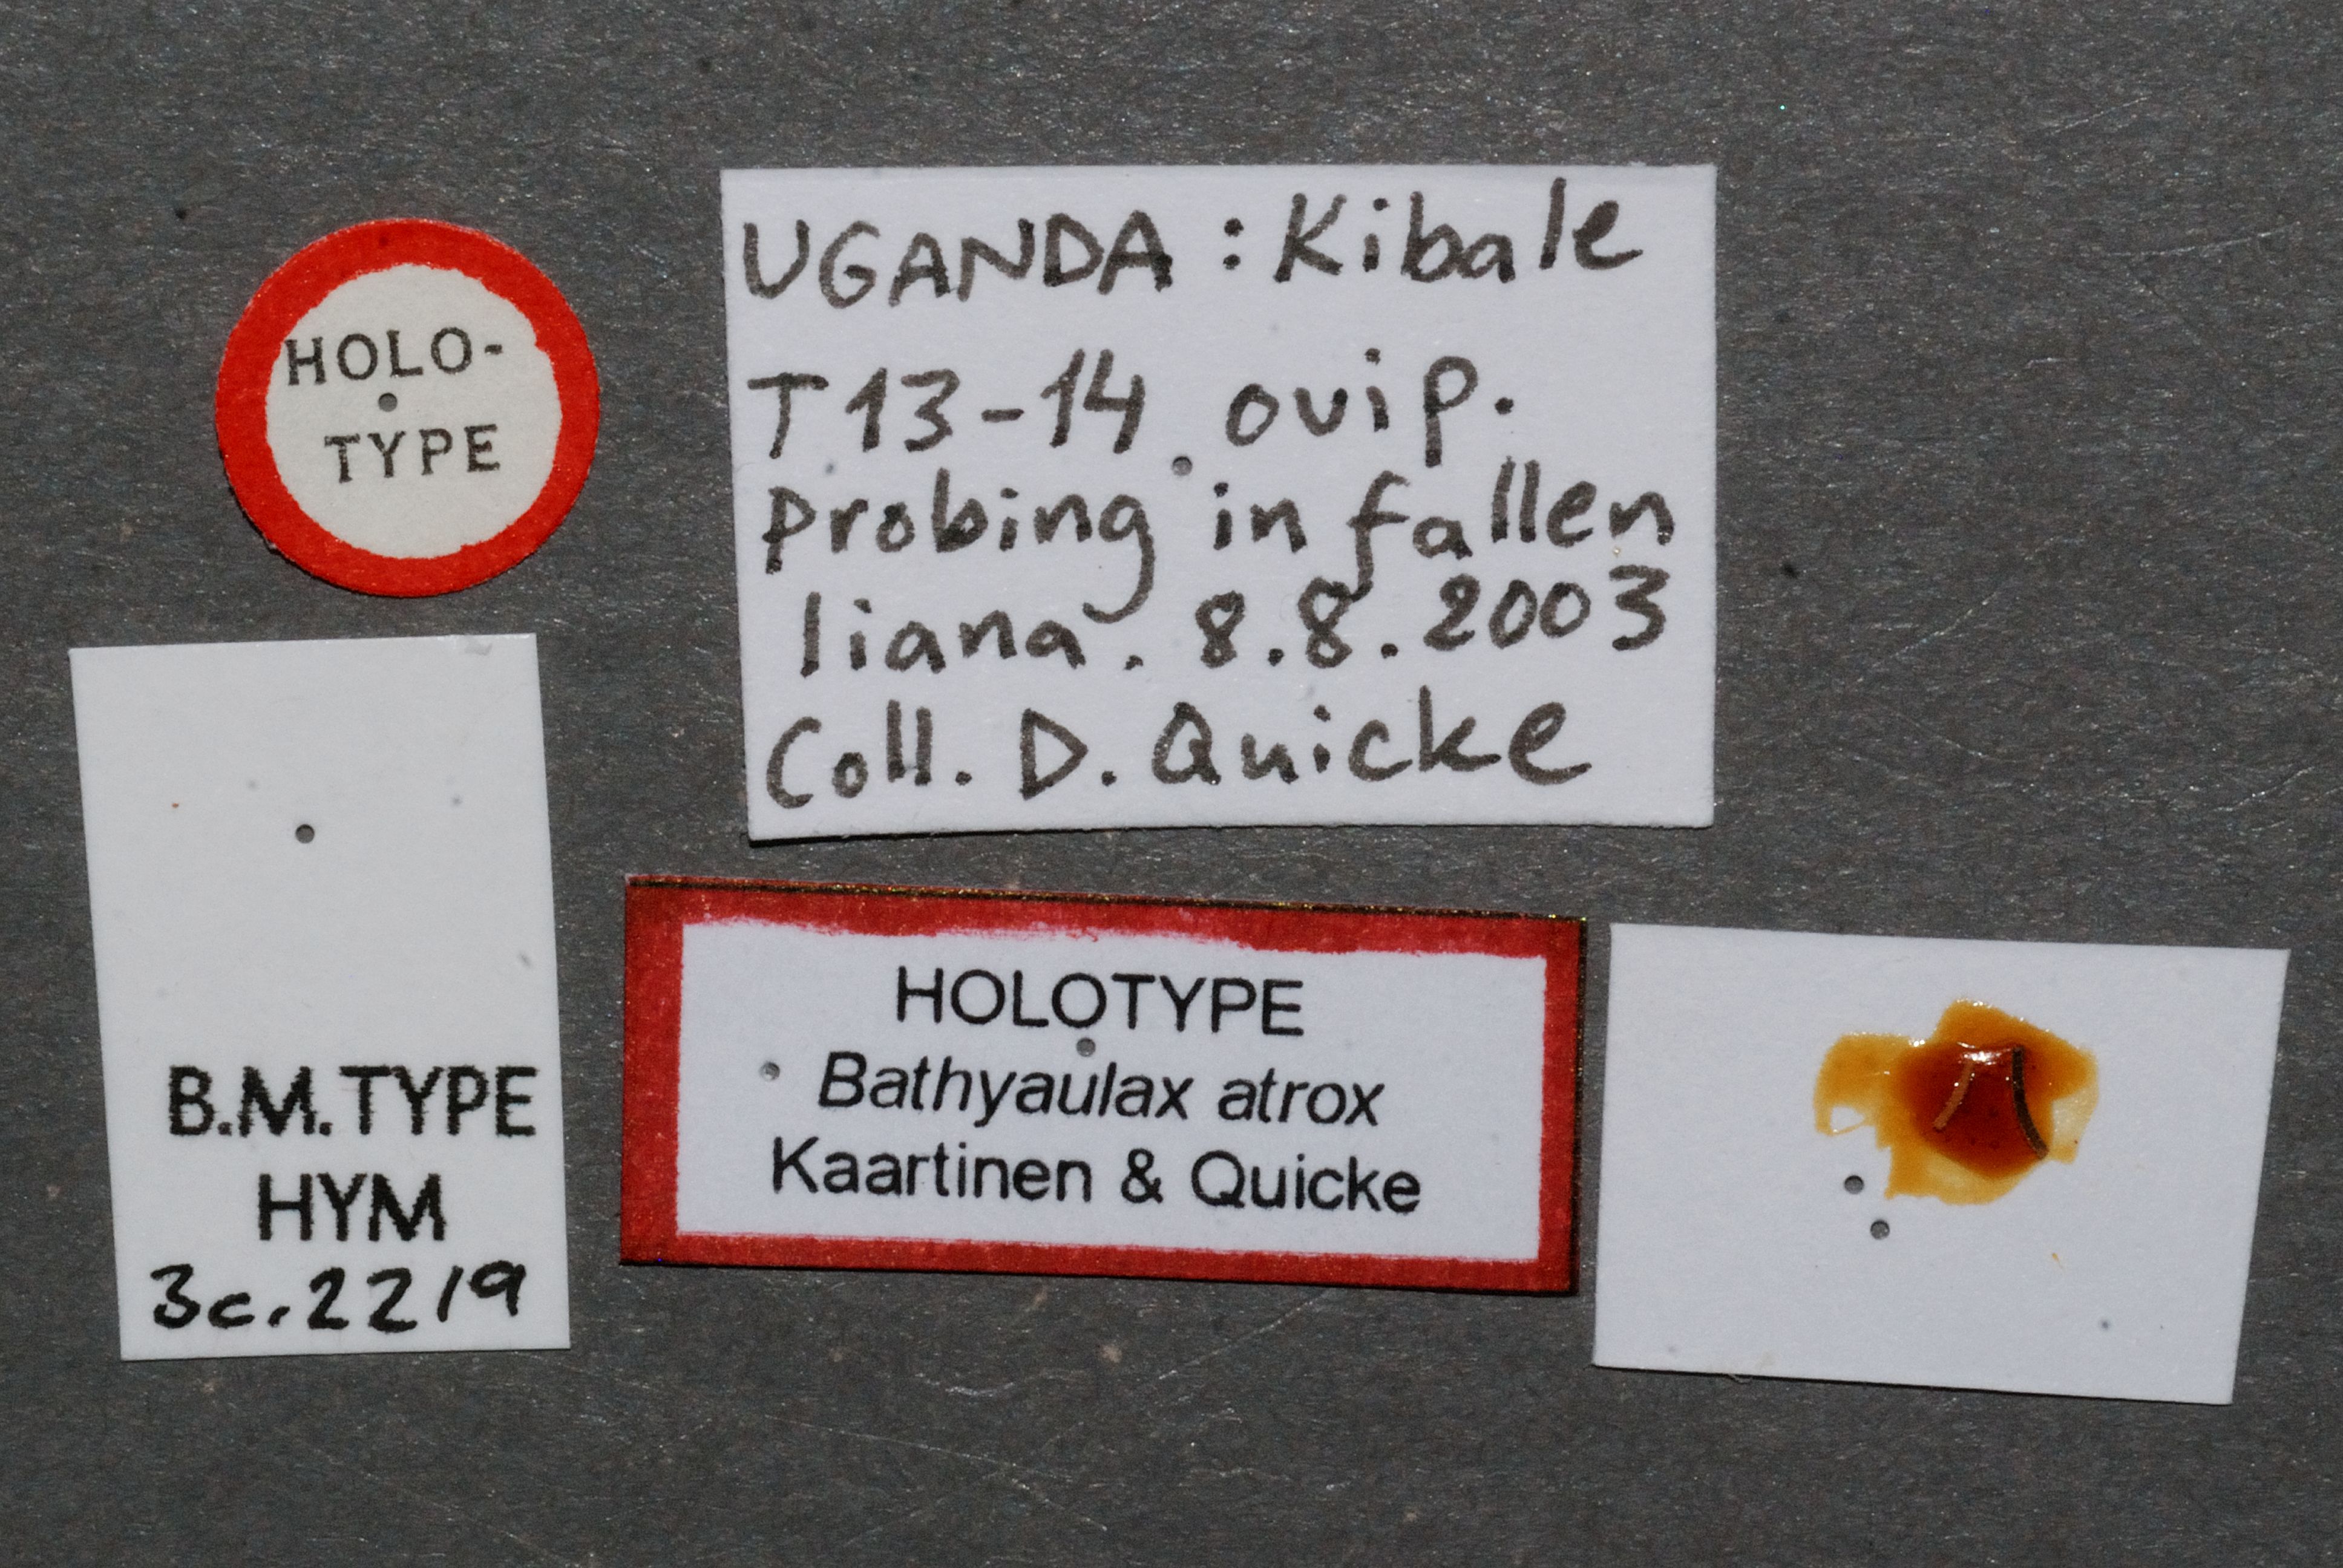 HOLO-
TYPE
UGANDA : Kibale
T13-14 ovip.
probing in fallen
liana. 8.8.2003
Coll. D. Quicke
B.M. TYPE
HYM
3c.2219
HOLOTYPE
Bathyaulax atrox
Kaartinen & Quicke